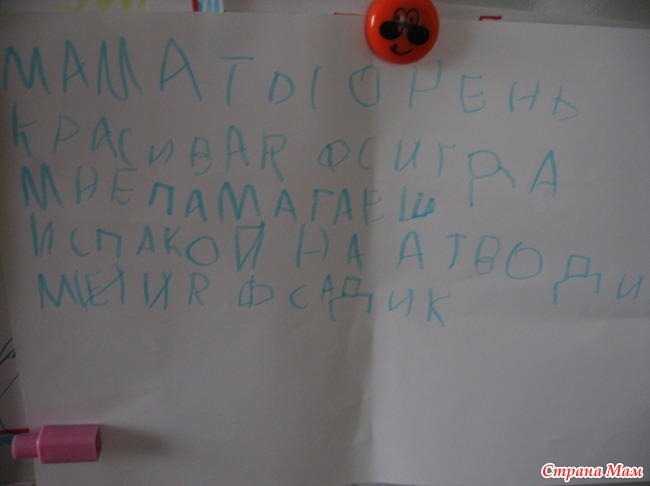 МАМА ТЫ ОЧЕНЬ
КРАСИВАЯ ФСИГДА
МНЕ ПАМАГАЕШ
И СПАКОЙНА АТВОДИ
МЕНИЯ ФСАДИК
Страна Мам